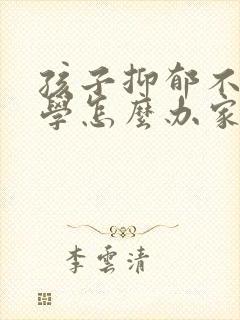 孩子抑郁不
學怎麼办家
李雲清